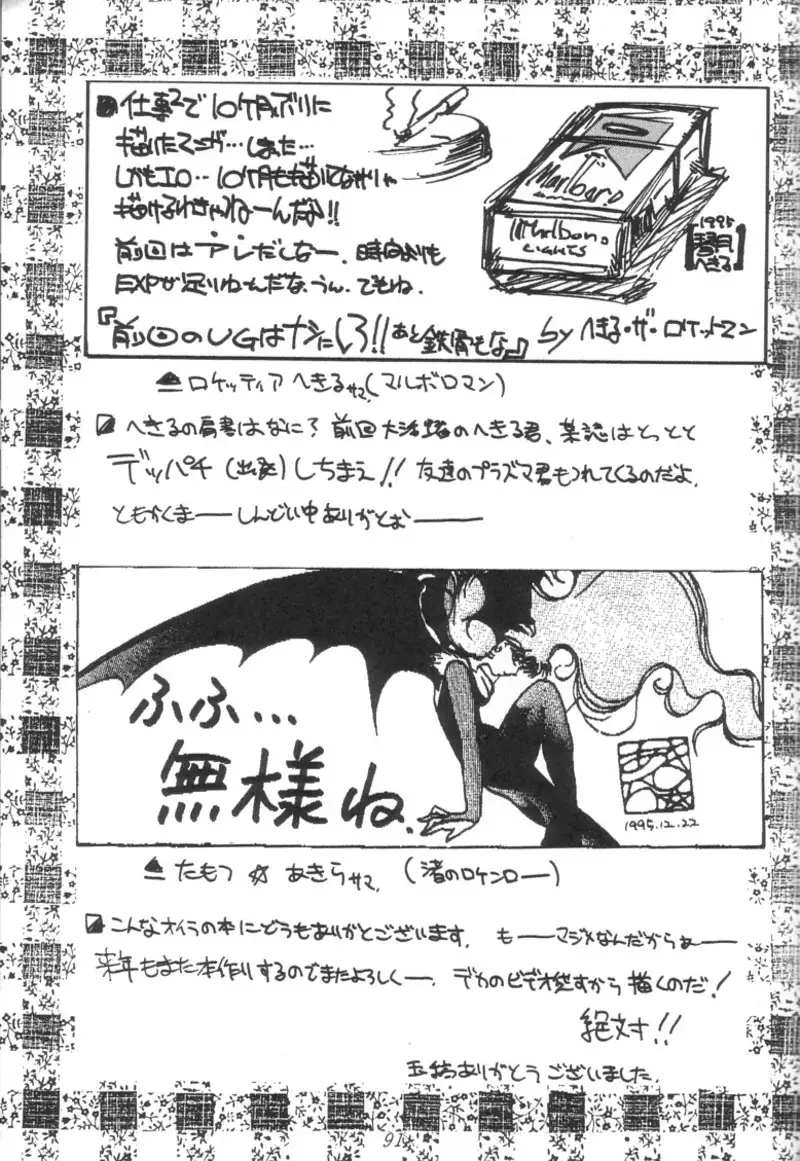 仕事で10ケ月ぶりに
描けたマンガ…しまた…
しかもエロ…10ケ月も描いてなかりゃ
描けるわきゃねーんだな!!
前回はアレだしなー、時間よりも
EXPが足りねーんだな、うん、でもね、
『前回のUGはナシにしろ!!あと鉄骨もな』by へきる・ザ・ロケットマン
Marlboro
Marlboro
LIGHTS
1995
へきる
ロケッティア へきるサマ(マルボロマン)
へきるの肩書はなに? 前回大活躍のへきる君、某誌はとっとと
デッパチ(出発)しちまえ!! 友達のプラズマ君もつれてくるのだよ、
ともかくまーーしんどい中ありがとおーーー
ふふ…
無様ね.
1995.12.22
たもつ☆あきらサマ、(渚のロケンロー)
こんなオイラの本にどうもありがとございます。もーーマジメなんだからぁーー
来年もまた本作りするのでまたよろしくー、デカのビデオ探すから描くのだ!
絶対!!
玉稿ありがとうございました
91